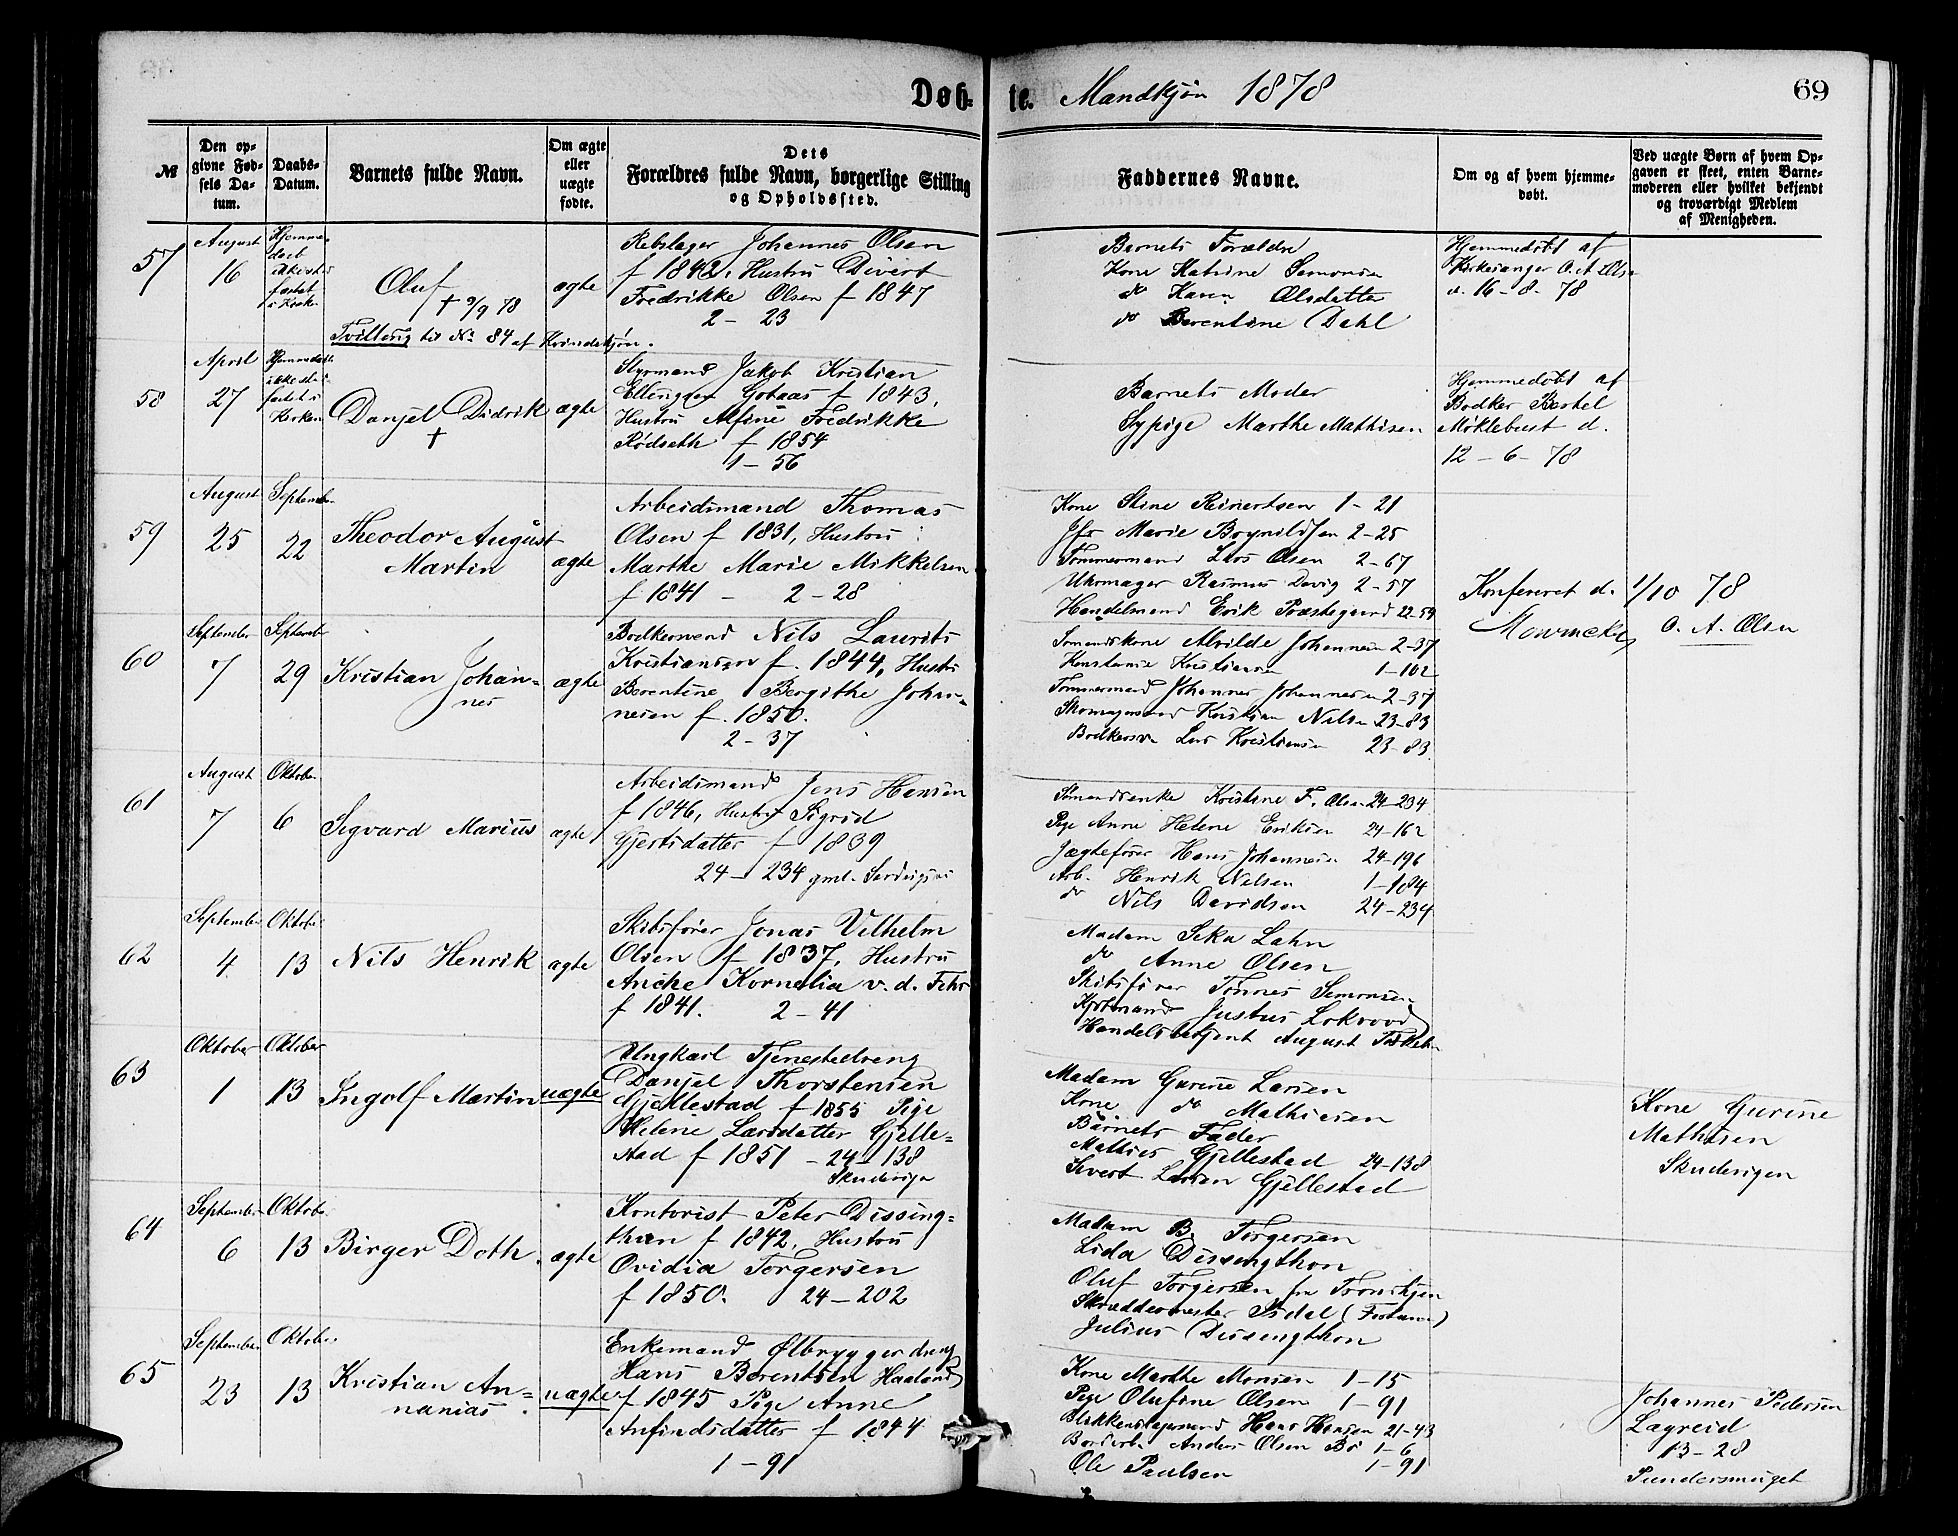 Døb-te. Mandkjøn 1878
69
№
Den opgivne Fødsels Datum.
Daabs-Datum.
Barnets fulde Navn.
Om ægte eller uægte fødte.
Dets Forældres fulde Navn, borgerlige Stilling og Opholdssted.
Faddernes Navne.
Om og af hvem hjemmedøbt.
Ved uægte Børn af hvem Opgaven er skeet, enten Barnemoderen eller hvilket bekjendt og troværdigt Medlem af Menigheden.
57
August
16
Hjemmedøbt
i Kirke
Oluf
† 9/9 78
Tvilling til No 84 af Kvindekjøn.
ægte
Rebslager Johannes Olsen
f 1842, Hustru Divert
Fredrikke Olsen f 1847
2 - 23
Barnets Forældre
Kone Katrine Simonsen
do Karen Olsdatter
do Berentine Dahl
Hjemmedøbt af
Kirkesanger O. A. Olsen
d. 16-8-78
58
April
27
Hjemmedøbt
ikke stadfæstet i
Kirken
Danjel Didrik
†
ægte
Styrmand Jakob Kristian
Ellingsen Gotaas f 1843,
Hustru Alfine Fredrikke
Rødseth f 1854
1-56
Barnets Moder
Sypige Marthe Mathisen
Hjemmedøbt af
Bødker Bertel
Møklebust d.
12-6-78
59
August
25
September
22
Theodor August
Martin
ægte
Arbeidsmand Thomas
Olsen f 1831, Hustru
Marthe Marie Mikkelsen
f 1841 - 2-28
Kone Stine Reinertsen 1-21
Jfr Marie Brynildsen 2-25
Tømmermand Lars Olsen 2-67
Uhrmager Rasmus Devig 2-57
Handelsmand Erik Præstegaard 22-59
Konfereret d. 1/10 78
O. A. Olsen
60
September
7
September
29
Kristian Johan=
nes
ægte
Bødkermend Nils Laurits
Kristiansen f. 1844, Hustru
Berentine Bergithe Johan-
nesen f. 1850.
2-37
Sømandskone Alvilde Johannesen 2-37
Konstanse Kristiansen 1-102
Tømmermand Johannes Johannesen 2-37
Skomagersvend Kristian Nilsen 23-83
Bødkersv. Lars Kristiansen 23-83.
61
August
7
Oktober
6
Sigvard Marius
ægte
Arbeidsmand Jens Hansen
f 1846, Hustru Sigrid
Gjertsdatter f 1839
24-234 gml.
Sømandsenke Kristine F. Olsen 24-234
Pige Anne Helene Eriksen 24-162
Jægtefører Hans Johannesen 24-196
Arb. Henrik Nilsen 1-104
do Nils Davidsen 24-234
62
September
4
Oktober
13
Nils Henrik
ægte
Skibsfører Jonas Vilhelm
Olsen f 1837, Hustru
Anche Kornelia v. d. Fehr
f 1841. 2-41
Madam Sika Lahn
do Anne Olsen
Skibsfører Tønnes Simonsen
Kjøbmand Justus Lokvood
Handelsbetjent August
63
Oktober
1
Oktober
13
Ingolf Martin
uægte
Ungkarl Tjenestedreng
Danjel Thorstensen
Gjellestad f 1855 Pige
Helene Larsdatter Gjelle=
stad f 1851 - 24-138
Skudevigen
Madam Gurine Larsen
Kone do Mathiesen
Barnets Fader
Mathies Gjellestad 24-138
Sivert Larsen Gjellestad
Kone Gurine
Mathisen
Skudevigen
64
September
6
Oktober
13
Birger Doth.
ægte
Kontorist Peter Dissing=
thun f 1842, Hustru
Ovidia Torgersen
f 1850. 24-202
Madam B. Torgersen
Lida Dissingthon
Oluf Torgersen fra Tronhjem
Skræddermester Isdal
Julius Dissingthon
65
September
23
Oktober
13
Kristian An=
nanias.
uægte
Enkemand Ølbryggerdreng
Hans Berentsen Haaland
f 1845 Pige Anne
Anfindsdatter f 1844
1-91
Kone Marthe Monsen 1-15
Pige Olufine Olsen 1-91
Blikkenslagersvend Hans Hansen 21-43
Anders Olsen Bø 1-6
Ole Paulsen 1-91
Johannes Pedersen
Lægreid
13-28